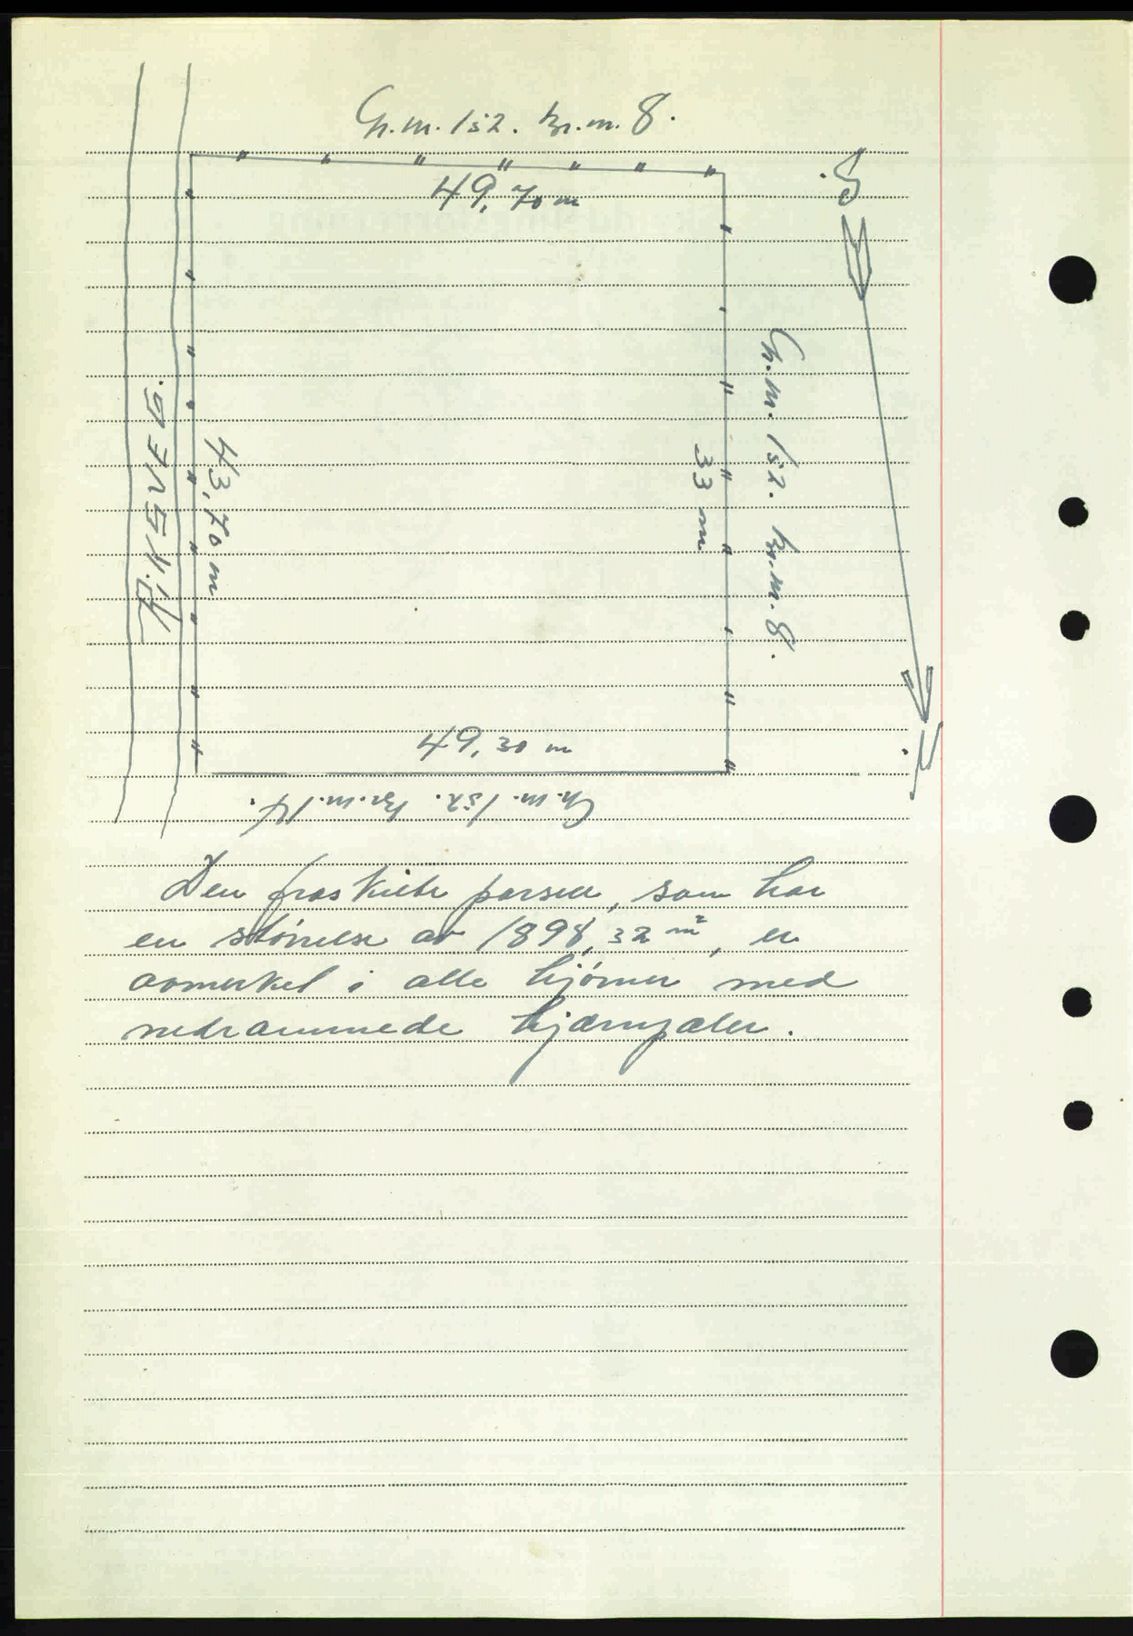 G.m. 152. br.m. 8.
49,70 m
S.
G.m. 152. br.m. 8.
33 m
43,70 m
49,30 m
N.
G.m. 152. Br.m. 14.
Den fraskilte parsell, som har
en störrelse av 1898,32 m², er
avmerket i alle hjörner med
nedrammede hjærnpæler.